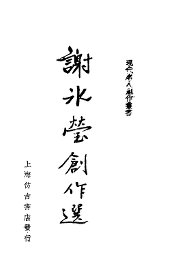 現代名人創作叢書
謝冰瑩創作選
上海仿古書店發行